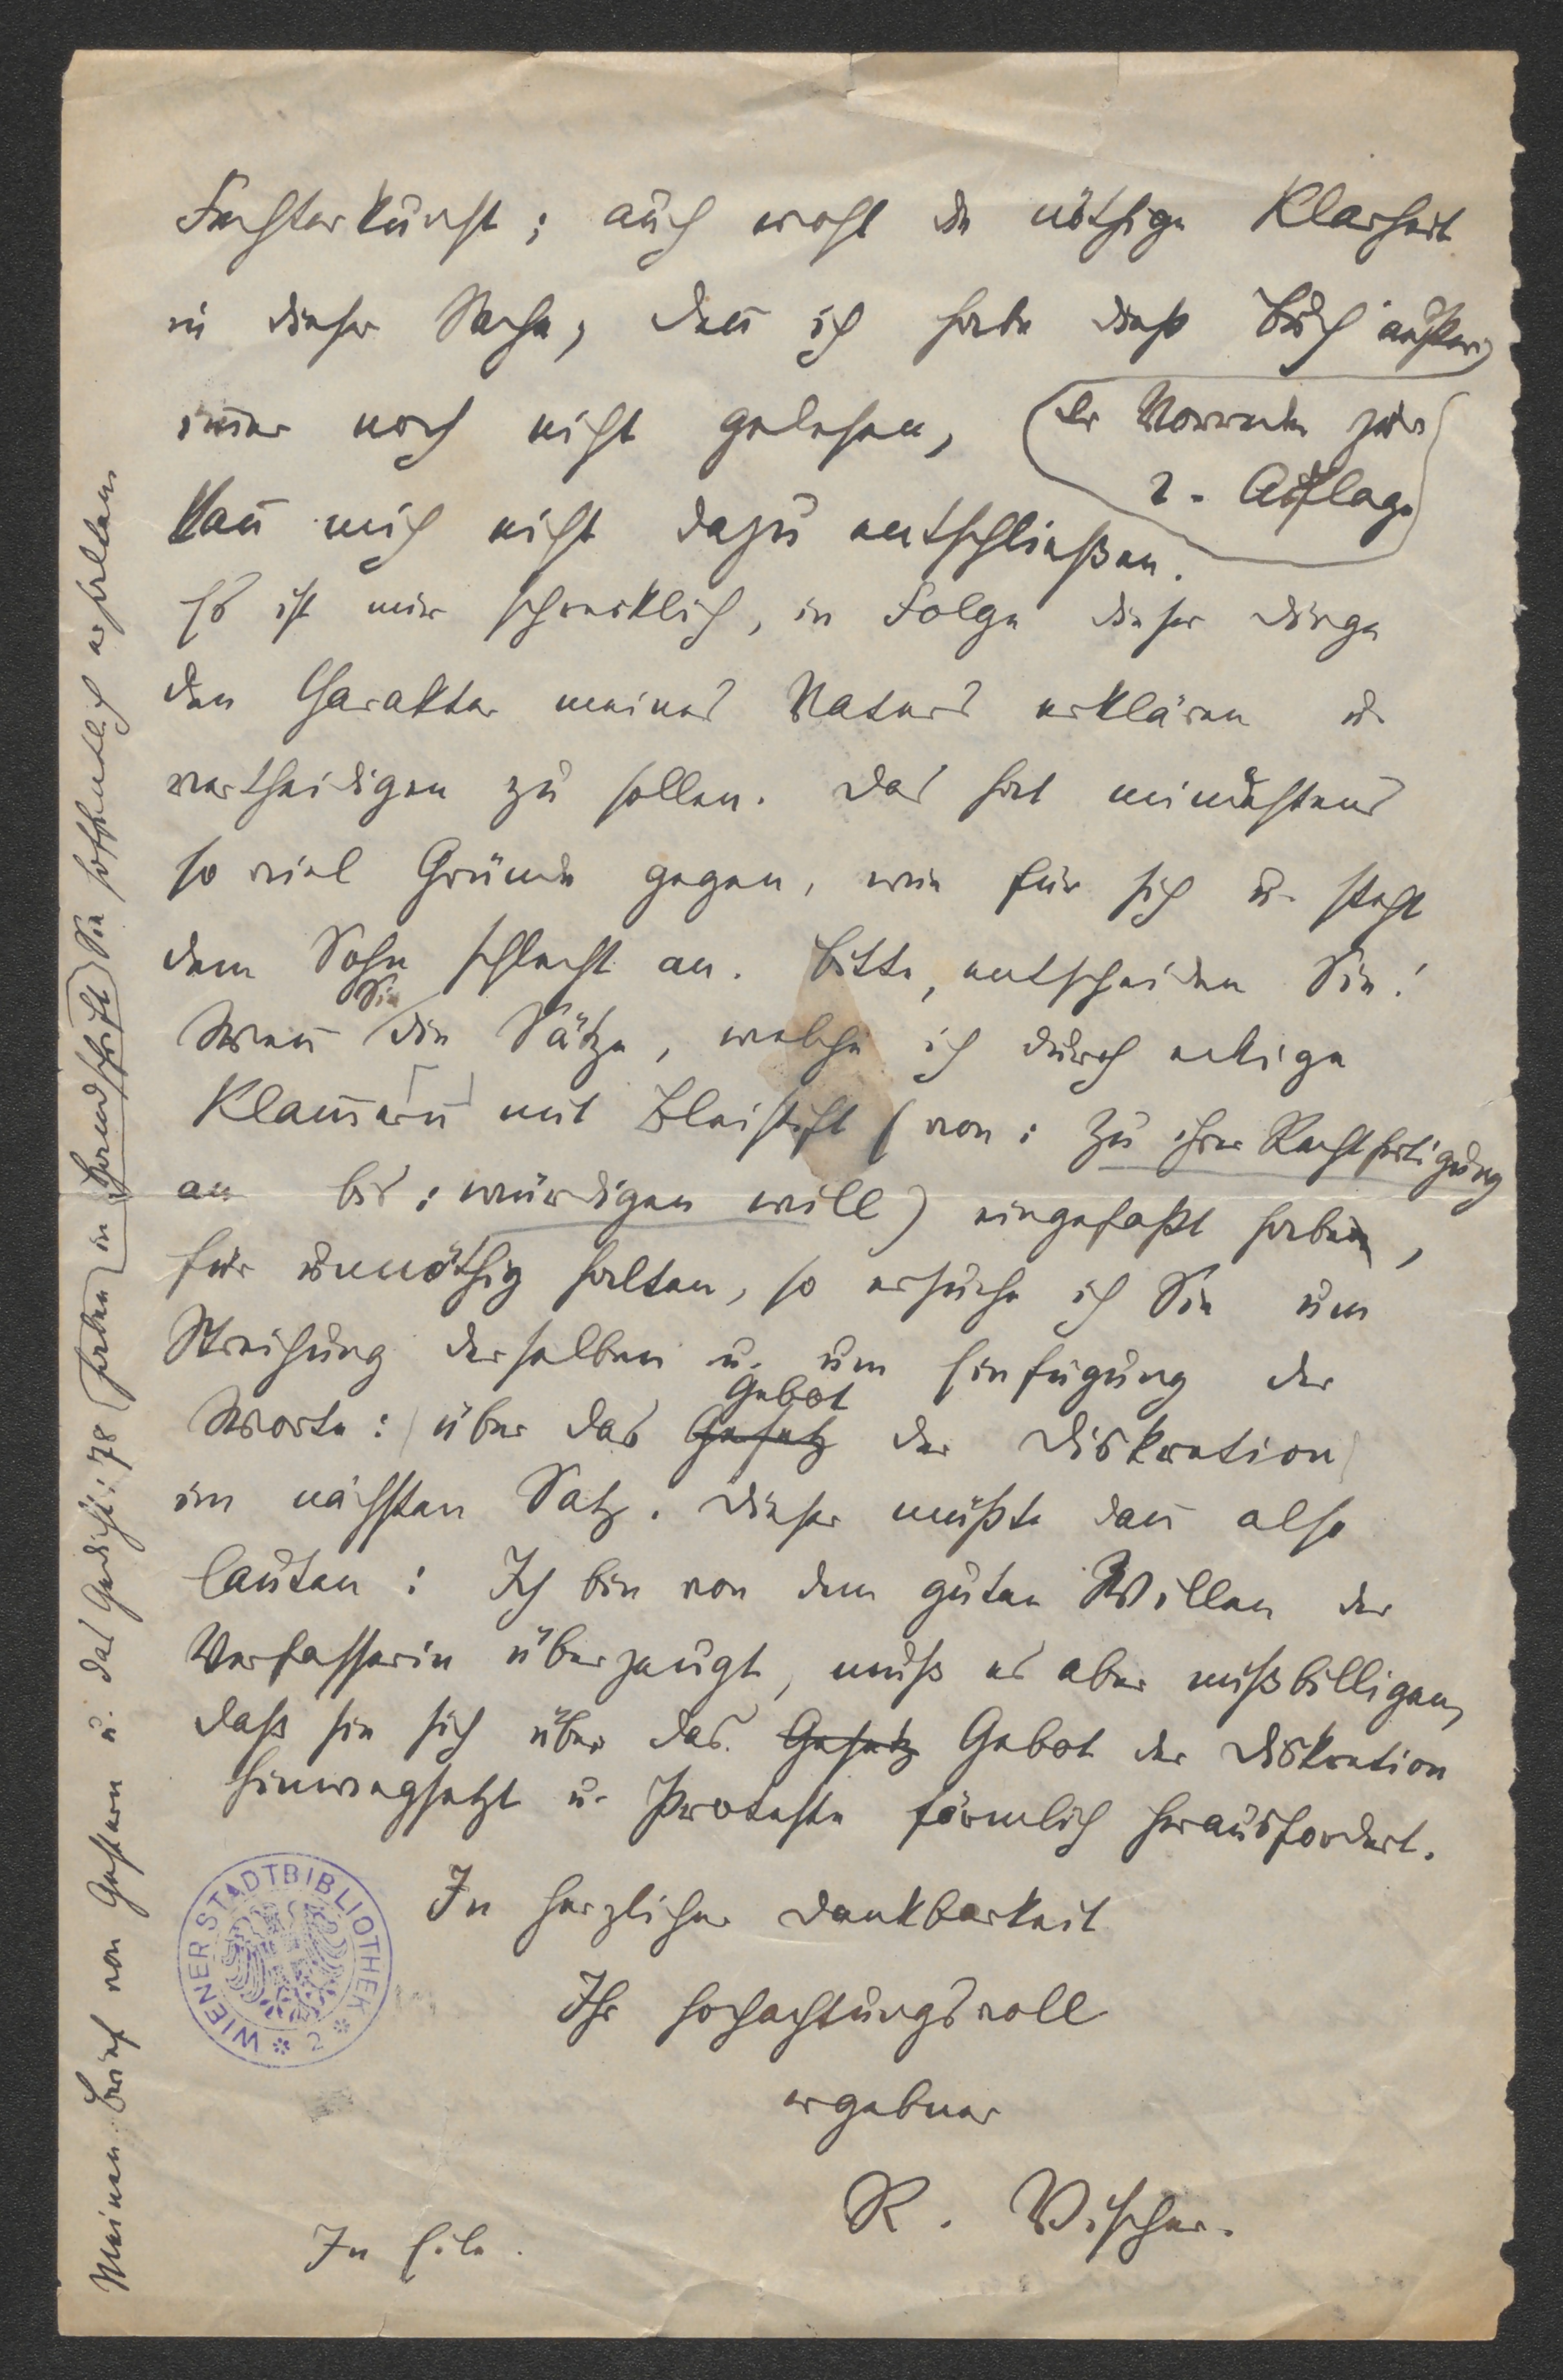 Fechterkunst; auch wohl die nöthige Klarheit
in dieser Sache, denn ich habe dieß Buch außer
immer noch nicht gelesen, der Vorrede zur
2. Auflage
kann mich nicht dazu entschließen.
Es ist mir schrecklich, in Folge dieser Dinge
den Charakter meines Vaters erklären u.
vertheidigen zu sollen. Das hat mindestens
so viel Gründe gegen, wie für sich u. steht
dem Sohn schlecht an. Bitte, entscheiden Sie!
Wenn Sie die Sätze, welche ich durch eckige
Klammern mit Bleistift (von: Zu ihrer Rechtfertigung
an bis: würdigen will) eingefaßt habe,
für unnöthig halten, so ersuche ich Sie um
Streichung derselben u. um Einfügung der
Gebot
Worte: über das Gesetz der Diskretion
im nächsten Satz. Dieser müßte dann also
lauten: Ich bin von dem guten Willen der
Verfasserin überzeugt, muß es aber mißbilligen,
daß sie sich über das Gesetz Gebot der Diskretion
hinwegsetzt u. Proteste förmlich herausfordert.
In herzlicher Dankbarkeit
Ihr hochachtungsvoll
ergebner
R. Vischer.
In Eile.
Meinen Brief von Gestern u. das Gedicht: 78 haben in Handschrift Sie hoffentlich erhalten
WIENER STADTBIBLIOTHEK * 2 *